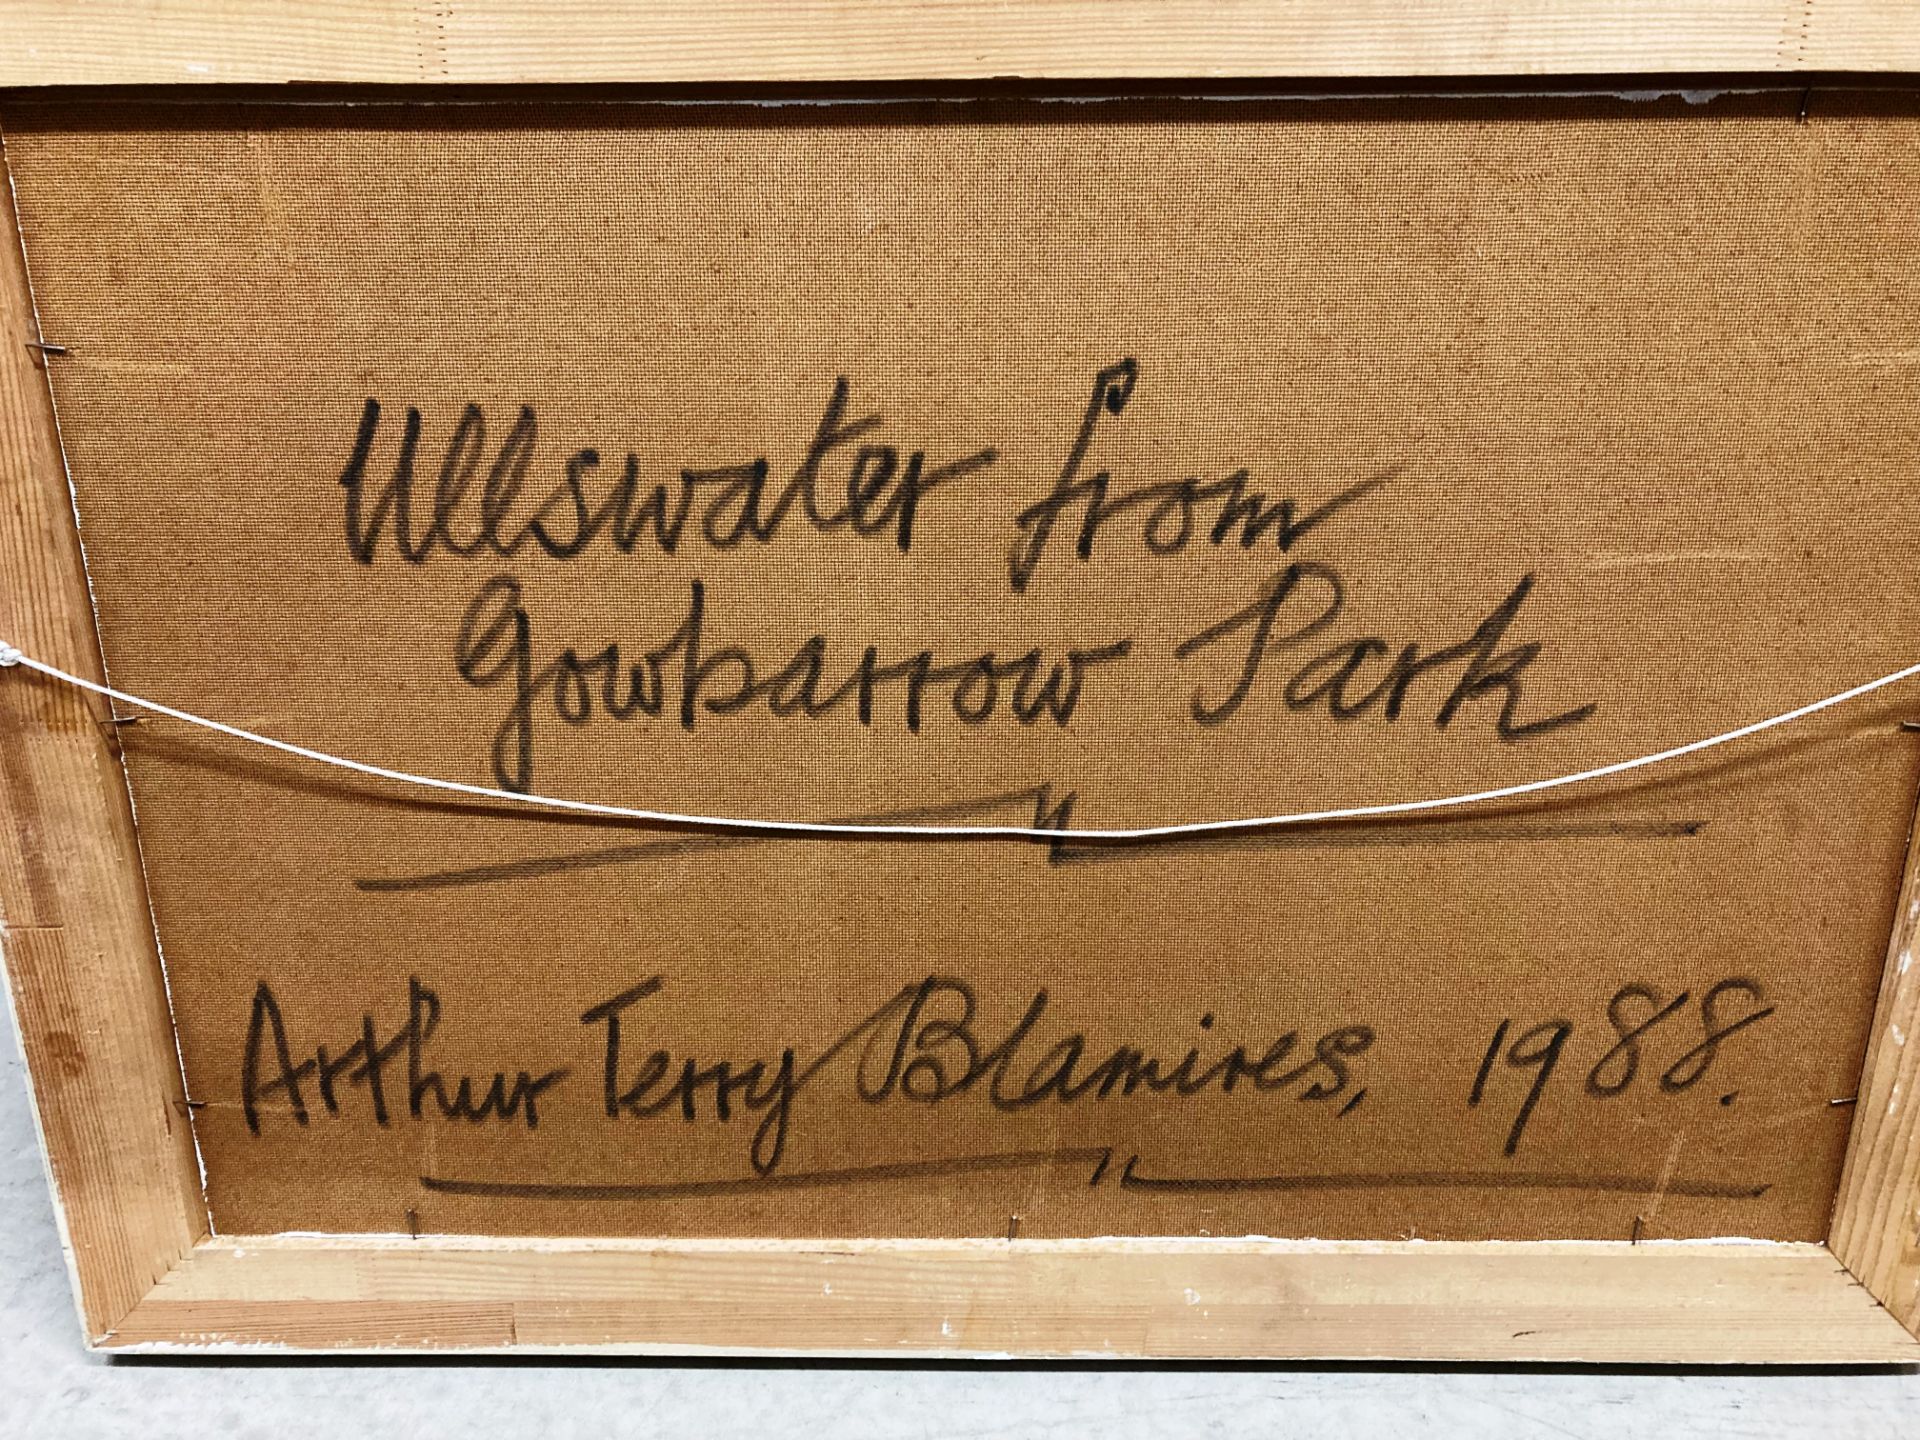 Ullswater from
Gowbarrow Park
Arthur Terry Blamires, 1988.